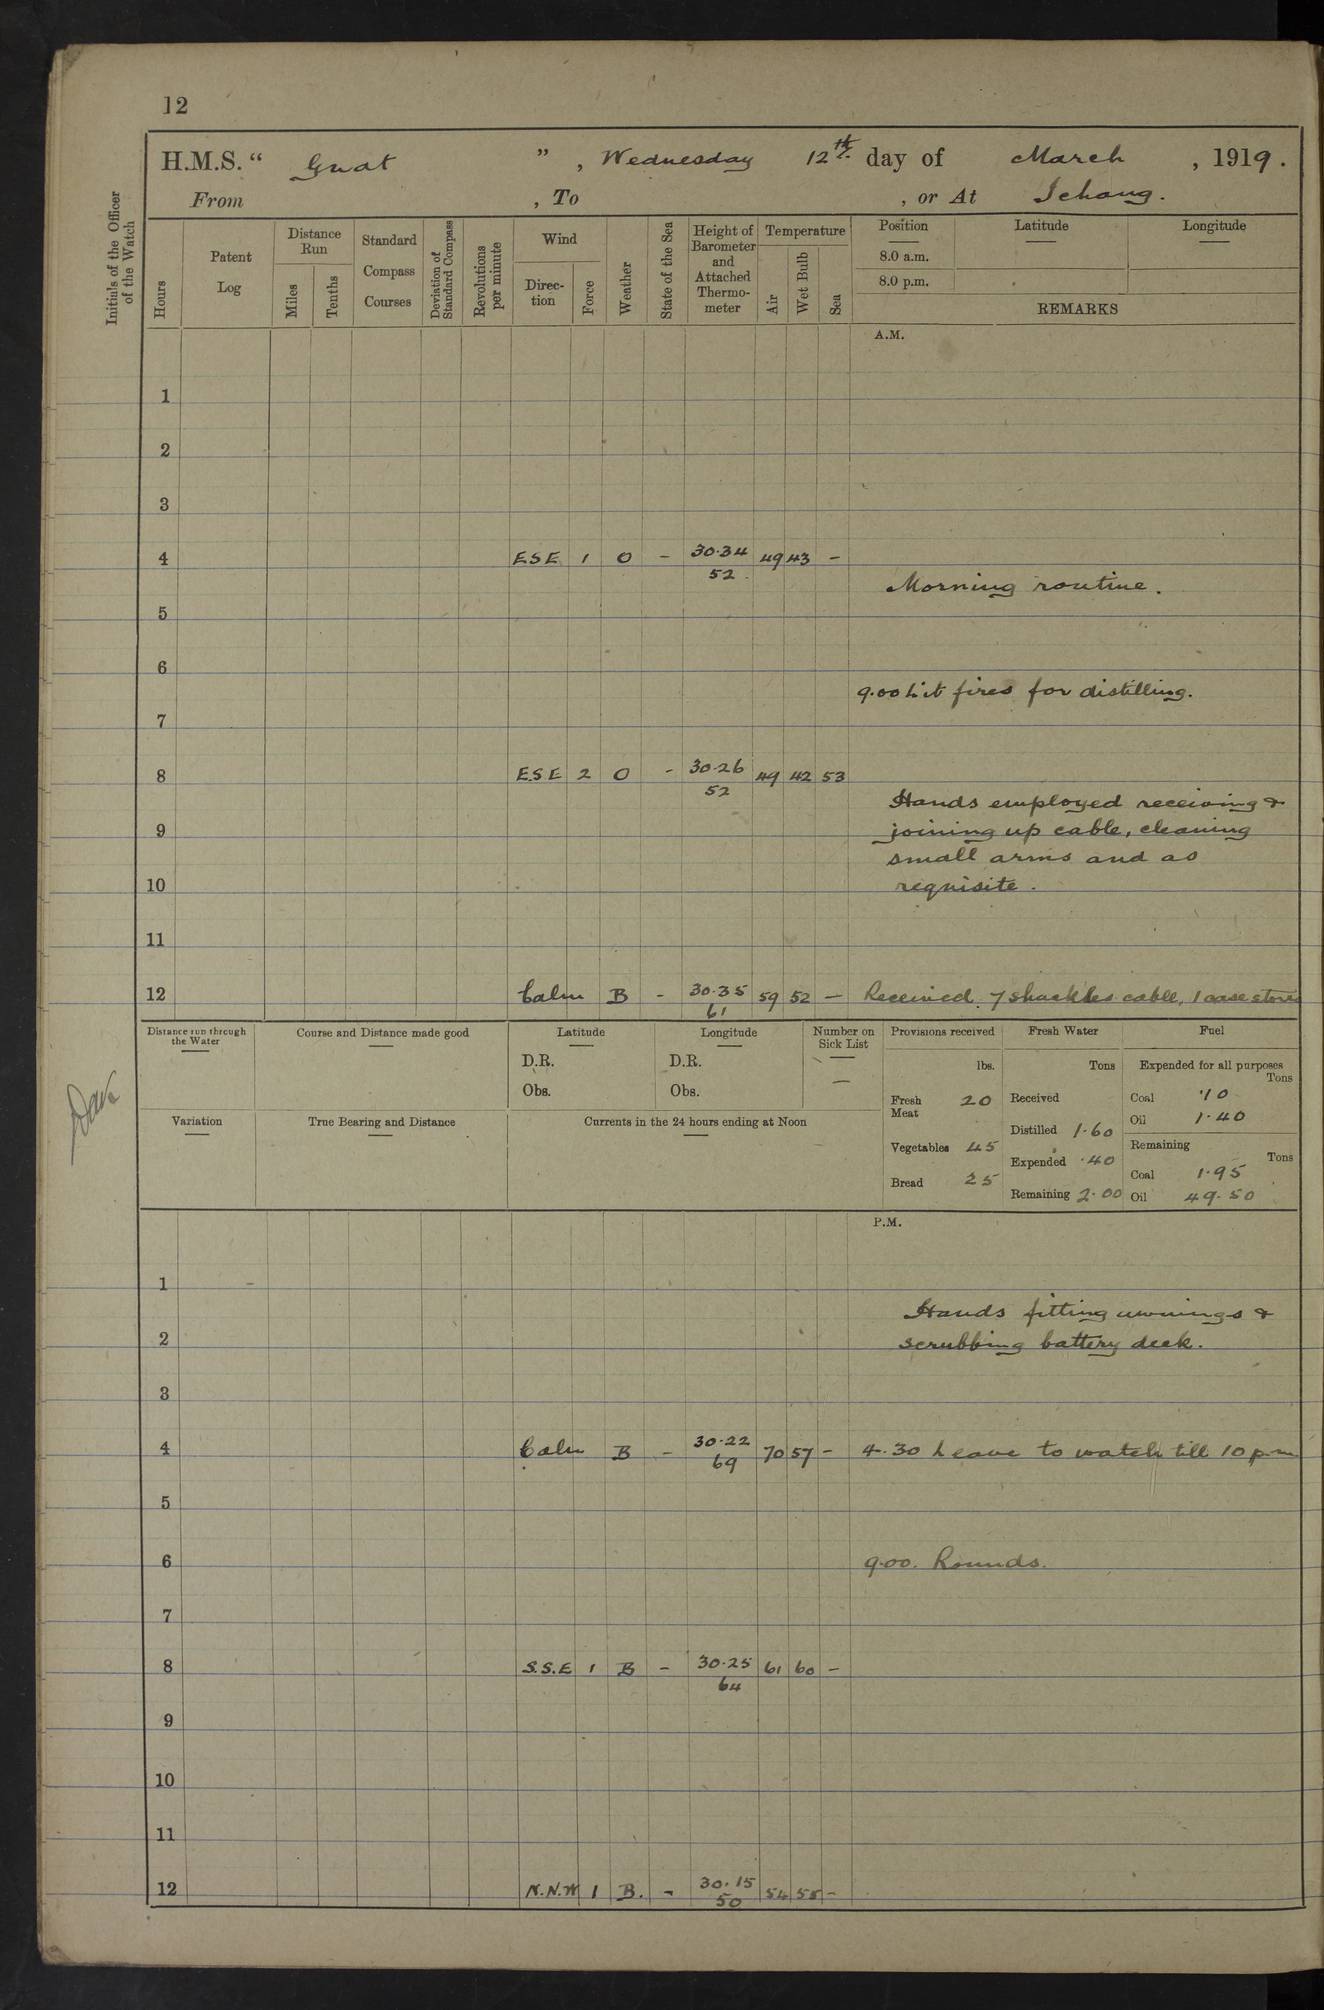 12
H.M.S. “ Gnat ” , Wednesday 12th day of March , 1919.
From , To , or At Ichang.
Initials of the Officer of the Watch
Hours
Patent Log
Distance Run
Miles
Tenths
Standard Compass Courses
Deviation of Standard Compass
Revolutions per minute
Wind
Direc-tion
Force
Weather
State of the Sea
Height of Barometer and Attached Thermo-meter
Temperature
Air
Wet Bulb
Sea
Position
8.0 a.m.
8.0 p.m.
Latitude
Longitude
REMARKS
A.M.
1
2
3
4 ESE 1 O - 30.34 49 43 -
52
Morning routine.
5
6
9.00 Lit fires for distilling.
7
8 E.S.E 2 O - 30.26 49 42 53
52
Hands employed receiving &
9 joining up cable, cleaning
small arms and as
10 requisite.
11
12 Calm B - 30.35 59 52 - Received 7 shackles cable, 1 case stores
61
Distance run through the Water
Course and Distance made good
Latitude
D.R.
Obs.
Longitude
D.R.
Obs.
Number on Sick List
-
Provisions received
lbs.
Fresh Meat 20
Vegetables 45
Bread 25
Fresh Water
Tons
Received
Distilled 1.60
Expended .40
Remaining 2.00
Fuel
Expended for all purposes
Tons
Coal .10
Oil 1.40
Remaining
Tons
Coal 1.95
Oil 49.50
Variation
True Bearing and Distance
Currents in the 24 hours ending at Noon
P.M.
1
Hands fitting awnings &
2 scrubbing battery deck.
3
4 Calm B - 30.22 70 57 - 4.30 Leave to watch till 10 p.m
69
5
6 9.00. Rounds.
7
8 S.S.E 1 B - 30.25 61 60 -
64
9
10
11
12 N.N.W 1 B. - 30.15 54 55 -
50